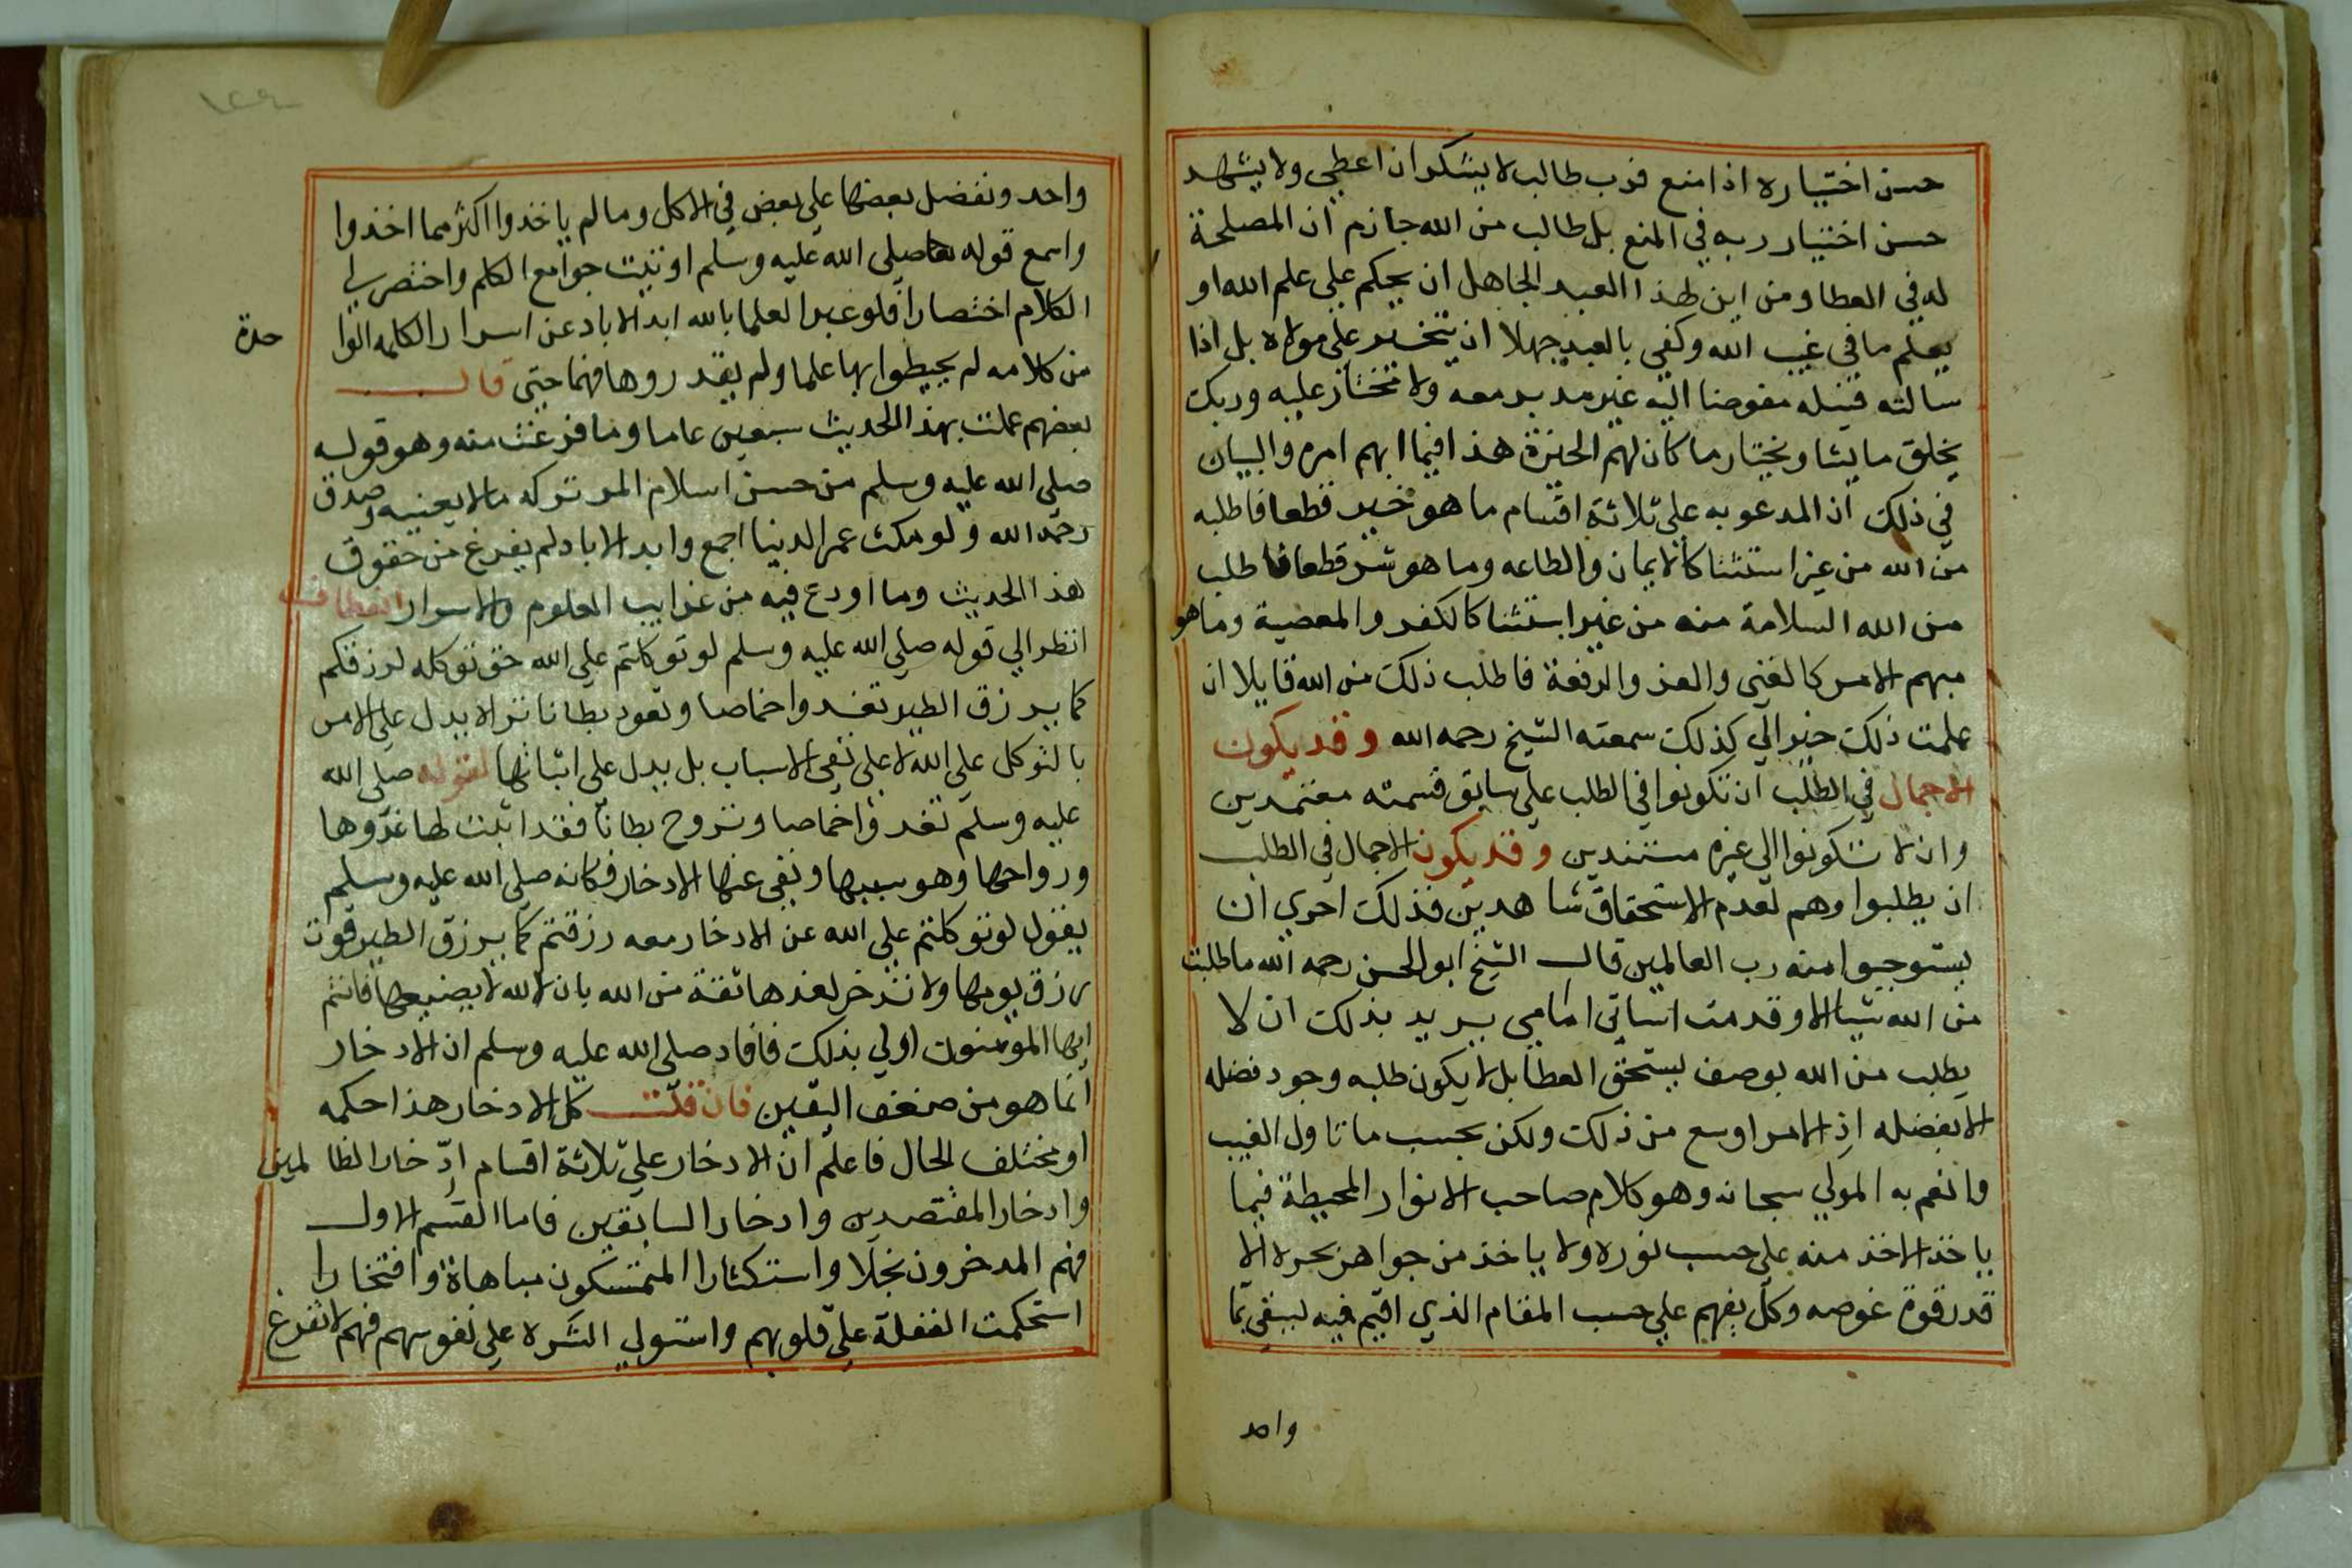 حسن اختياره اذا منع فرب طالب لا يشكر ان اعطي ولا يشهد
حسن اختيار ربه في المنع بل طالب من الله جازم ان المصلحة
له في العطا ومن اين لهذا العبد الجاهل ان يحكم علي علم الله او
يعلم ما في غيب الله وكفي بالعبد جهلا ان يتخير علي مولاه بل اذا
سالته فسله مفوضا اليه غير مدبر معه ولا مختار عليه وربك
يخلق ما يشا ويختار ما كان لهم الخيرة هذا فيما ابهم امره والبيان
في ذلك ان المدعو به علي ثلاثة اقسام ما هو خير قطعا فاطلبه
من الله من غير استثنا كالايمان والطاعه وما هو شر قطعا فاطلب
من الله السلامة منه من غير استثنا كالكفر والمعصية وما هو
مبهم الامر كالغني والعز والرفعة فاطلب ذلك من الله قايلا ان
علمت ذلك خيرا لي كذلك سمعته الشيخ رحمه الله وقد يكون
الاجمال في الطلب ان تكونوا في الطلب علي سابق قسمته معتمدين
وان لا تكونوا الي غيره مستندين وقد يكون الاجمال في الطلب
ان يطلبوا وهم لعدم الاستحقاق شاهدين فذلك احري ان
يستوجبوا منه رب العالمين قال الشيخ ابو الحسن رحمه الله ما طلبت
من الله شيا الا وقدمت اساتي امامي يريد بذلك ان لا
يطلب من الله بوصف يستحق العطا بل لا يكون طلبه وجود فضله
الا بفضله اذ الامر اوسع من ذلك ولكن بحسب ما تناول الغيب
وانعم به المولي سبحانه وهو كلام صاحب الانوار المحيطة فيما
ياخذ الاخذ منه علي حسب نوره ولا ياخذ من جواهر بحره الا
قدر قوة غوصه وكل يفهم علي حسب المقام الذي اقيم فيه ليسقي بما
واحد
واحد ونفضل بعضها علي بعض في الاكل وما لم ياخذوا اكثر مما اخذوا
واسمع قوله صلي الله عليه وسلم اوتيت جوامع الكلم واختصر لي
الكلام اختصارا فلو عبر العلما بالله ابد الاباد عن اسرار الكلمه الوا
حدة
من كلامه لم يحيطوا بها علما ولم يقدروها فهما حتي قال
بعضهم عملت بهذا الحديث سبعين عاما وما فرغت منه وهو قوله
صلي الله عليه وسلم من حسن اسلام المر تركه ما لا يعنيه وصدق
رحمه الله ولو مكث عمر الدنيا اجمع وابد الاباد لم يفرغ من حقوق
هذا الحديث وما اودع فيه من غرايب العلوم والاسرار انعطاف
انظر الي قوله صلي الله عليه وسلم لو توكلتم علي الله حق توكله لرزقكم
كما يرزق الطير تغدوا خماصا وتعود بطانا تراه يدل علي الامر
بالتوكل علي الله لا علي نفي الاسباب بل يدل علي اثباتها لقوله صلي الله
عليه وسلم تغدوا خماصا وتروح بطانا فقد اثبت لها غدوها
ورواحها وهو سببها ونفي عنها الادخار فكانه صلي الله عليه وسلم
يقول لو توكلتم علي الله عن الادخار معه رزقتم كما يرزق الطير قوت
رزق يومها ولا تدخر لغدها ثقة من الله بان الله لا يضيعها فانتم
ايها المومنون اولي بذلك فافاد صلي الله عليه وسلم ان الادخار
انما هو من ضعف اليقين فان قلت كل الادخار هذا حكمه
او مختلف الحال فاعلم ان الادخار علي ثلاثة اقسام ادخار الظالمين
وادخار المقتصدين وادخار السابقين فاما القسم الاول
فهم المدخرون بخلا واستكثارا المتمسكون مباهاة وافتخارا
استحكمت الغفلة علي قلوبهم واستولي الشره علي نفوسهم فهم لا تفرغ